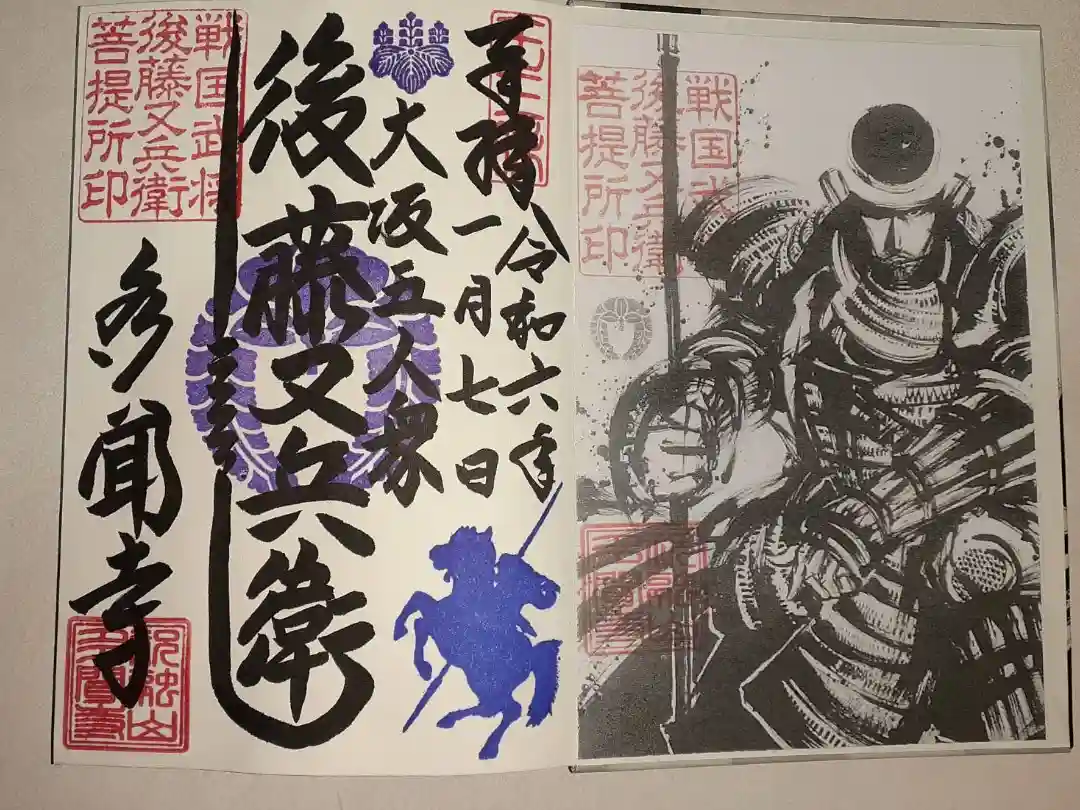 戦国武将
後藤又兵衛
菩提所印
奉拝
令和六年
一月七日
大阪五人衆
後藤又兵衛
戦国武将
後藤又兵衛
菩提所印
多聞寺